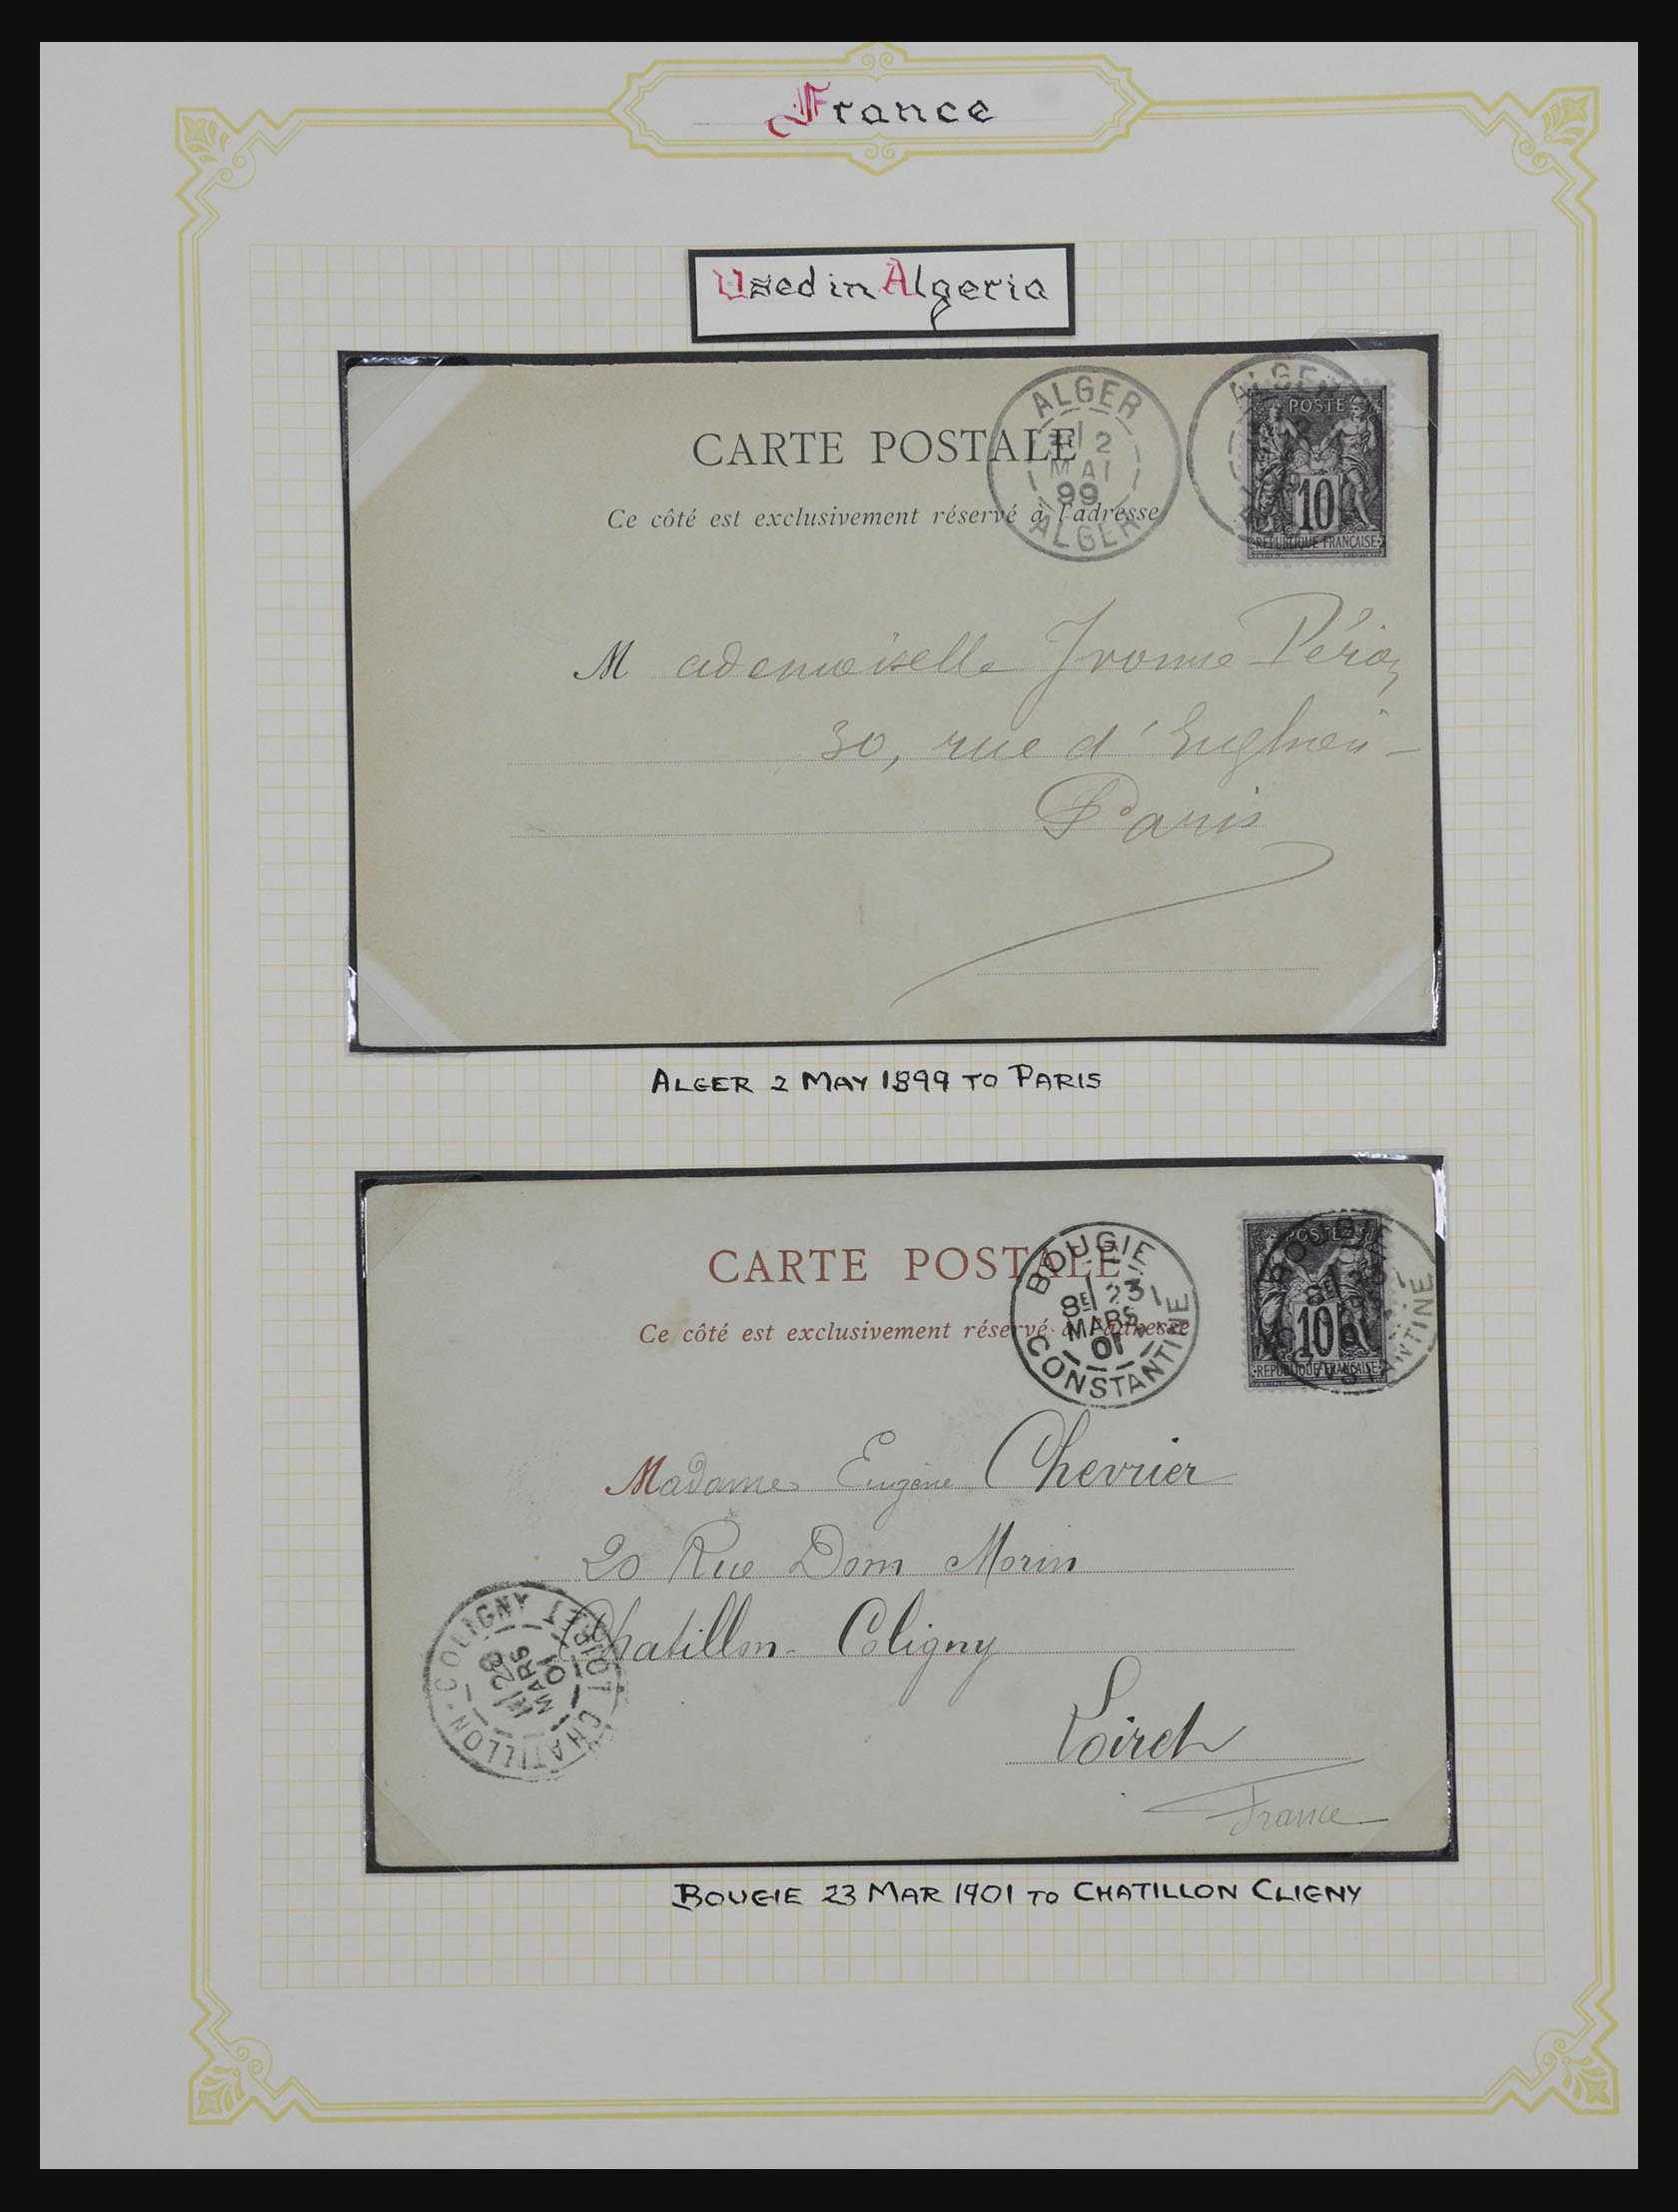 France
Used in Algeria
CARTE POSTALE
Ce côté est exclusivement réservé à l'adresse
ALGER
2
MAI
99
ALGER
ALGER
POSTE
10
REPUBLIQUE FRANÇAISE
Mademoiselle Yvonne
30, rue d'Enghien
Paris
ALGER 2 MAY 1899 TO PARIS
CARTE POSTALE
Ce côté est exclusivement réservé à l'adresse
BOUGIE
8E 23
MARS
01
CONSTANTINE
BOUGIE
8E
CONSTANTINE
POSTES
10
REPUBLIQUE FRANÇAISE
Madame Eugène Chevrier
20 Rue Dom Morin
Chatillon-Coligny
Loiret
France
CHATILLON-COLIGNY LOIRET
28
MARS
01
BOUGIE 23 MAR 1901 TO CHATILLON CLIGNY